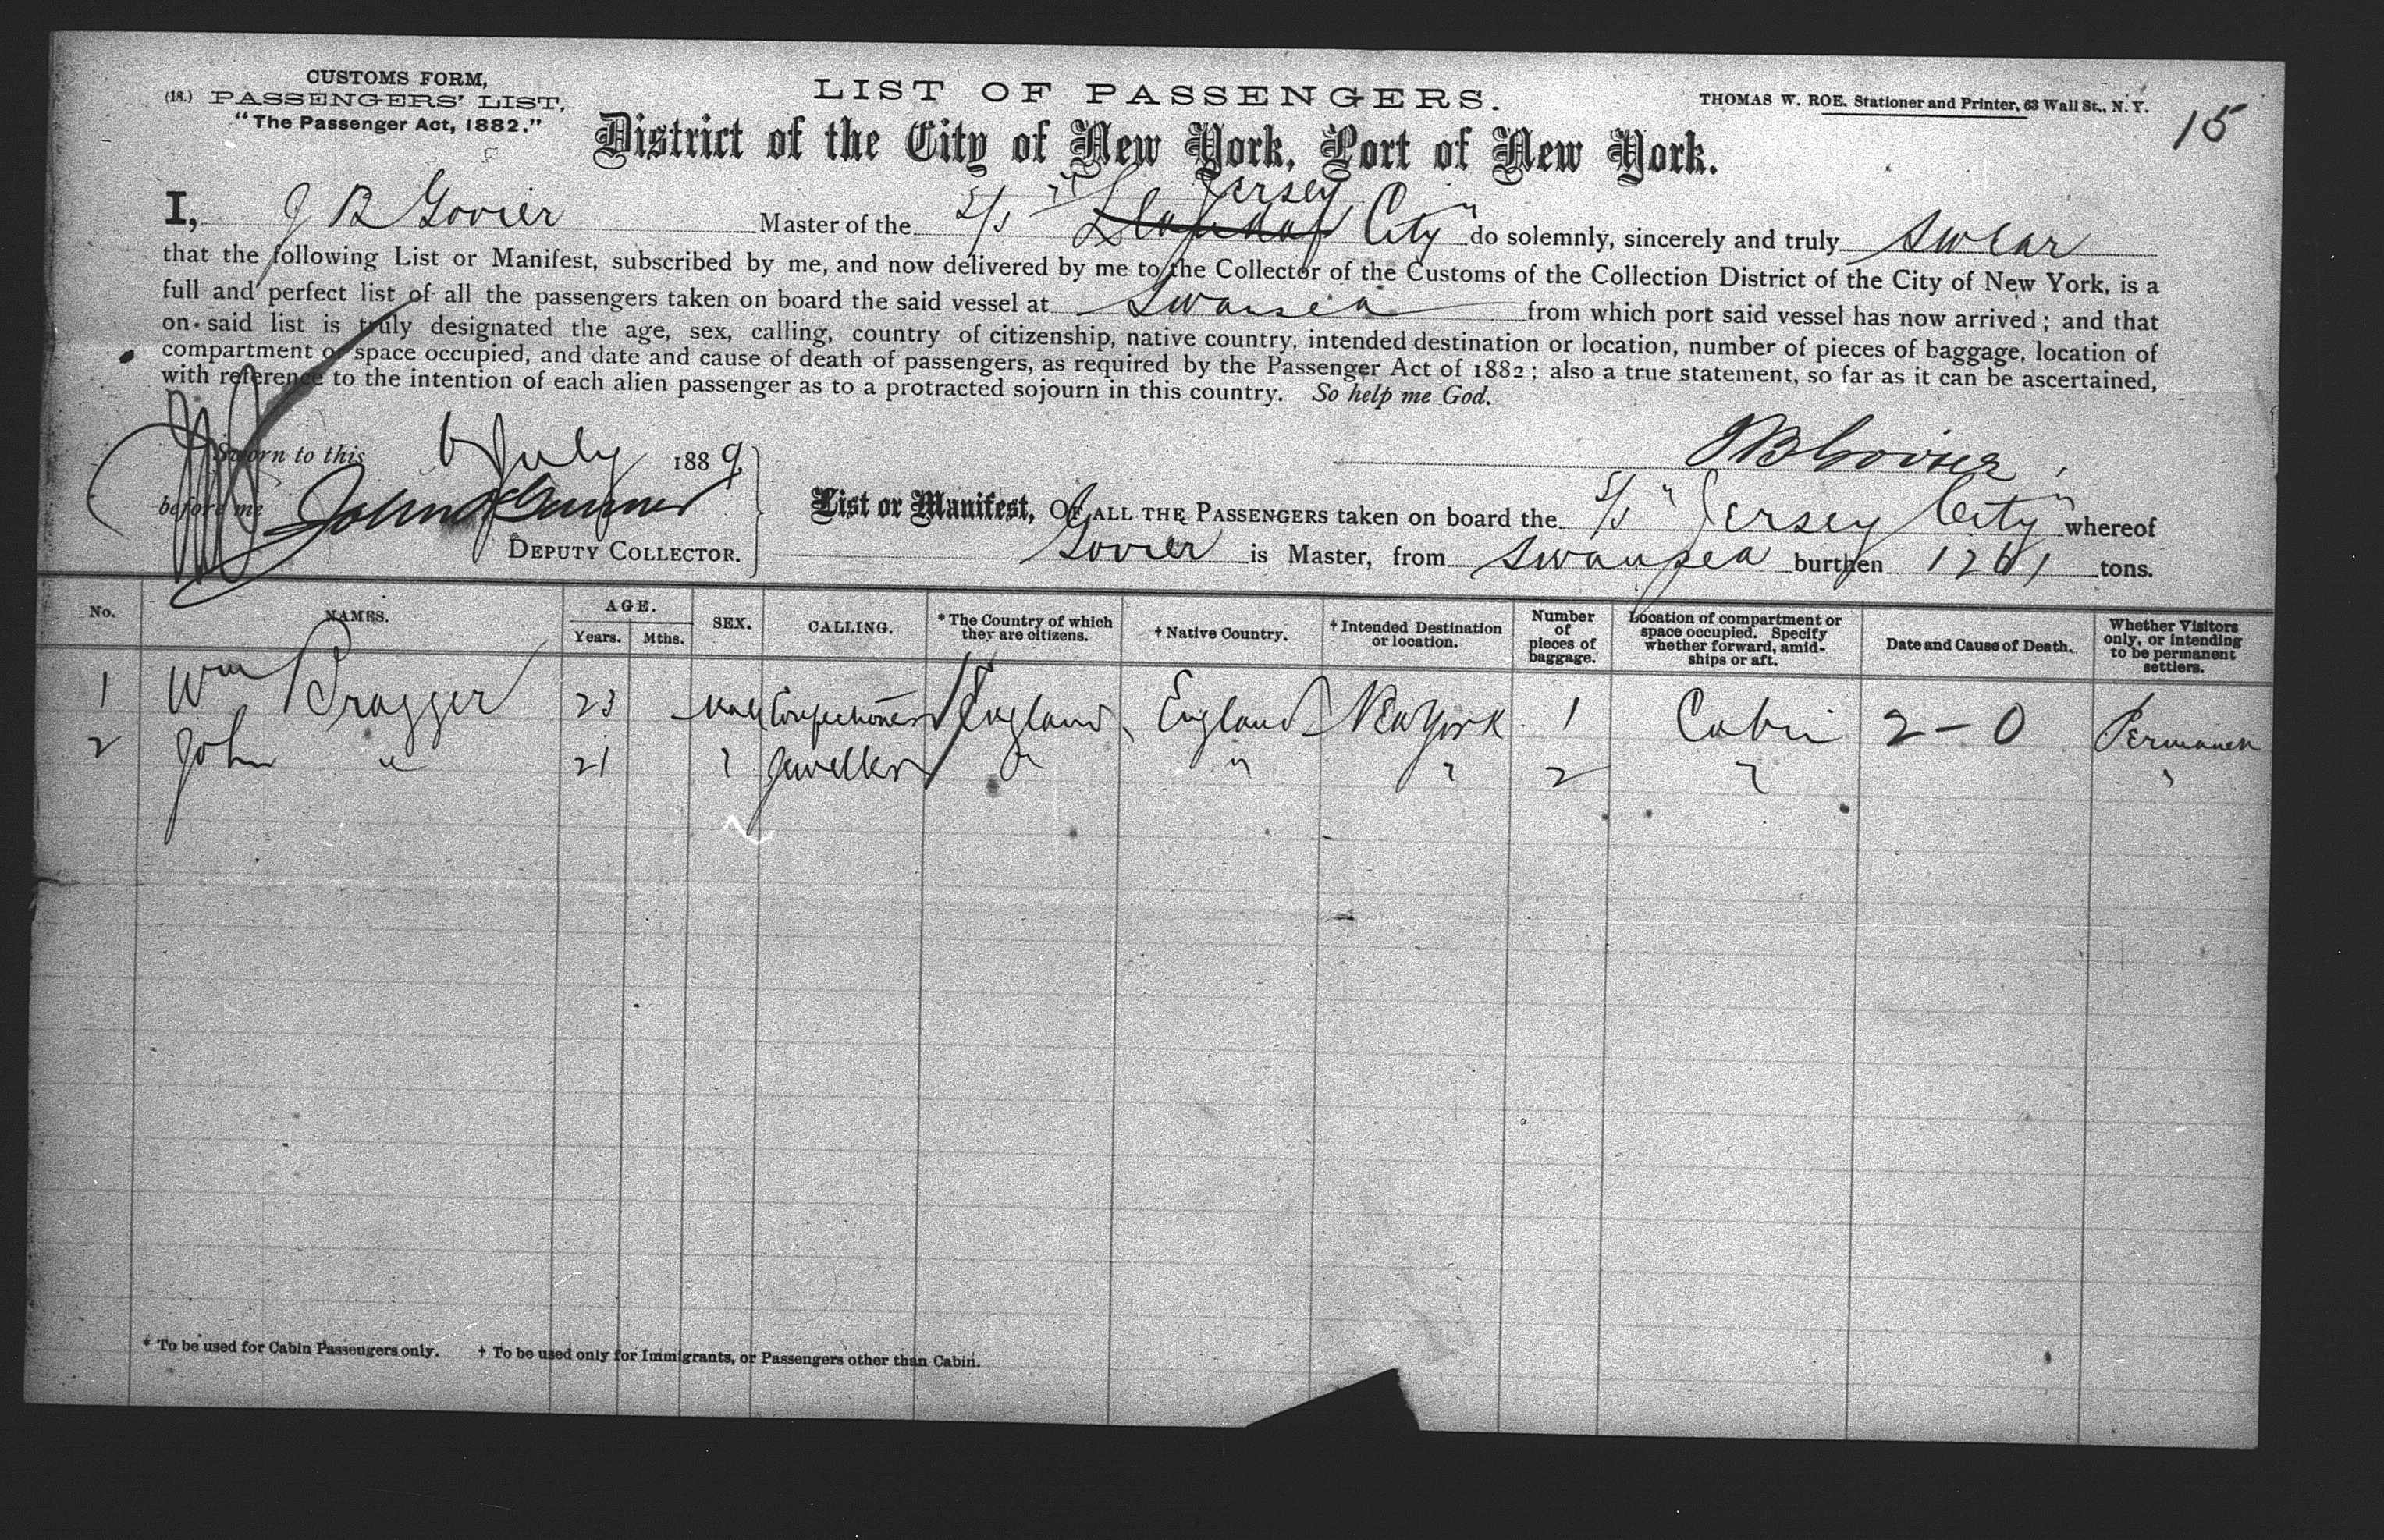 CUSTOMS FORM,
(18.) PASSENGERS' LIST,
"The Passenger Act, 1882."
LIST OF PASSENGERS.
THOMAS W. ROE. Stationer and Printer, 63 Wall St., N. Y.
15
District of the City of New York, Port of New York.
I, J B Govier Master of the S/S "Jersey City" do solemnly, sincerely and truly swear
that the following List or Manifest, subscribed by me, and now delivered by me to the Collector of the Customs of the Collection District of the City of New York, is a
full and perfect list of all the passengers taken on board the said vessel at Swansea from which port said vessel has now arrived; and that
on said list is truly designated the age, sex, calling, country of citizenship, native country, intended destination or location, number of pieces of baggage, location of
compartment or space occupied, and date and cause of death of passengers, as required by the Passenger Act of 1882; also a true statement, so far as it can be ascertained,
with reference to the intention of each alien passenger as to a protracted sojourn in this country. So help me God.
Sworn to this 6 July 1889
JB Govier
before me John
DEPUTY COLLECTOR.
List or Manifest, OF ALL THE PASSENGERS taken on board the S/S "Jersey City" whereof
Govier is Master, from Swansea burthen 1261 tons.
No. NAMES. AGE. Years. Mths. SEX. CALLING. * The Country of which they are citizens. † Native Country. † Intended Destination or location. Number of pieces of baggage. Location of compartment or space occupied. Specify whether forward, amidships or aft. Date and Cause of Death. Whether Visitors only, or intending to be permanent settlers.
1 Wm Bragger 23 Male Confectioner England England New York 1 Cabin 2-0 Permanen
2 John " 21 " Jeweller " " " 2 " "
* To be used for Cabin Passengers only. † To be used only for Immigrants, or Passengers other than Cabin.